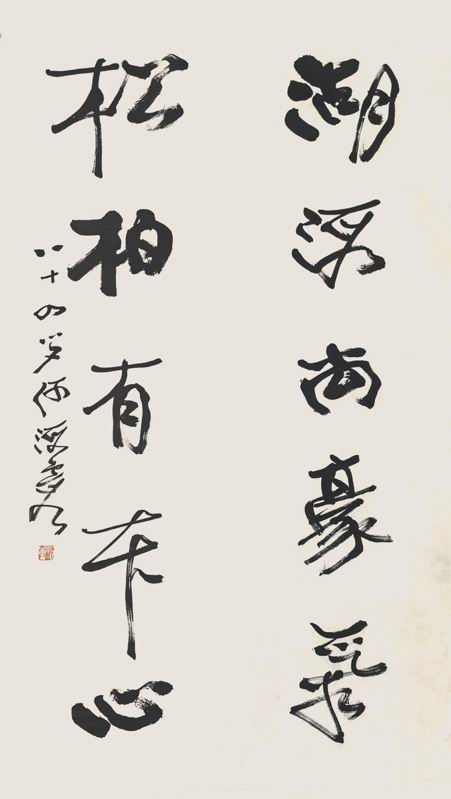 湖海尚豪氣
松柏有本心
八十四岁何海霞